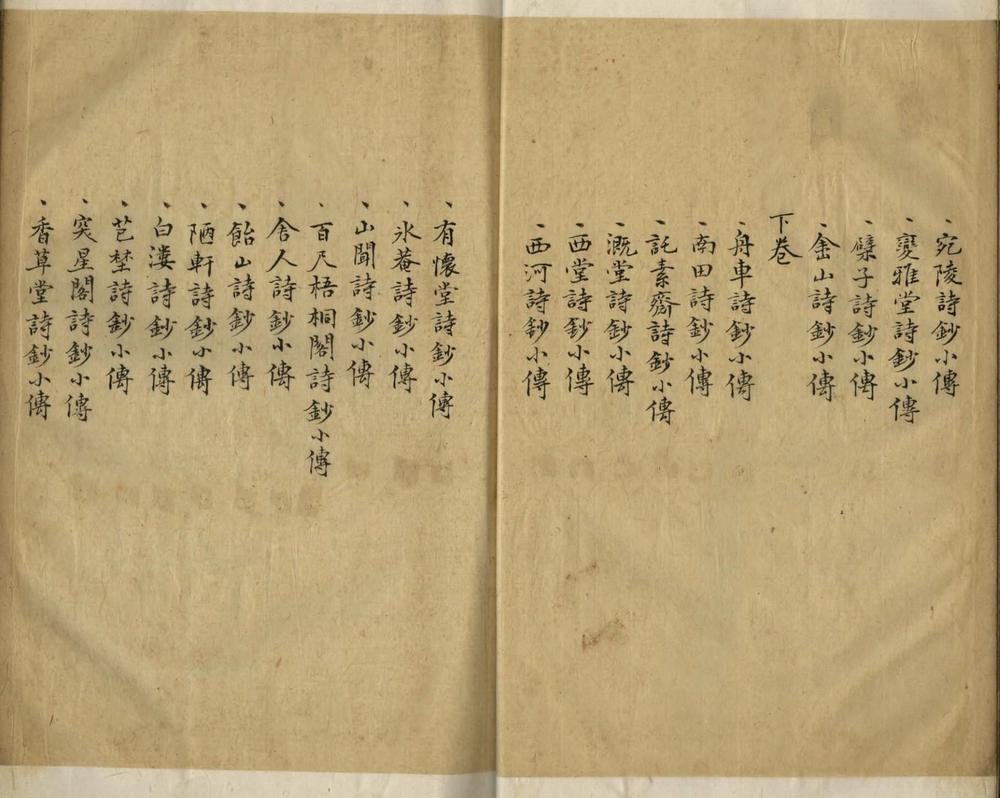 、宛陵詩鈔小傳
、夔雅堂詩鈔小傳
、檗子詩鈔小傳
、畬山詩鈔小傳
下卷
、舟車詩鈔小傳
、南田詩鈔小傳
、託素齋詩鈔小傳
、溉堂詩鈔小傳
、西堂詩鈔小傳
、西河詩鈔小傳
、有懷堂詩鈔小傳
、氷菴詩鈔小傳
、山聞詩鈔小傳
、百尺梧桐閣詩鈔小傳
、舍人詩鈔小傳
、飴山詩鈔小傳
、陋軒詩鈔小傳
、白漊詩鈔小傳
、芑埜詩鈔小傳
、突星閣詩鈔小傳
、香草堂詩鈔小傳